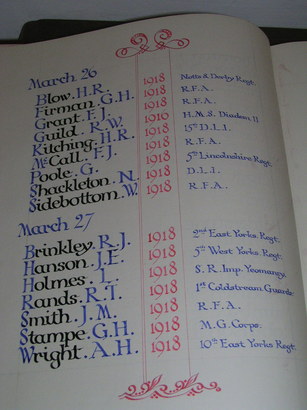 March 26
Blow. H.R. 1918 Notts & Derby Regt.
Firman. G.H. 1918 R.F.A.
Grant. F.J. 1918 R.F.A.
Guild. R.W. 1916 H.M.S. Diadem II
Kitching. H.R. 1918 15th D.L.I.
McCall. F.J. 1918 R.F.A.
Poole. G. 1918 5th Lincolnshire Regt.
Shackleton. N. 1918 D.L.I.
Sidebottom. W. 1918 R.F.A.
March 27
Brinkley. R.J. 1918 2nd East Yorks Regt.
Hanson. J.E. 1918 5th West Yorks Regt.
Holmes. L. 1918 S.R. Imp. Yeomanry.
Rands. R.T. 1918 1st Coldstream Guards.
Smith. J.M. 1918 R.F.A.
Stampe. G.H. 1918 M.G. Corps.
Wright. A.H. 1918 10th East Yorks Regt.